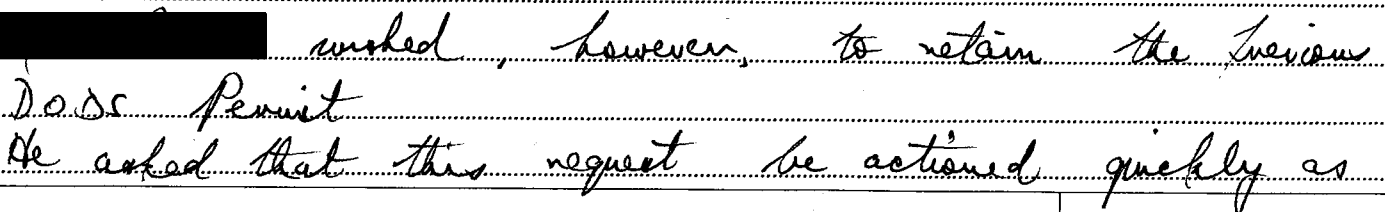 wished, however, to retain the previous
DODS Permit
He asked that this request be actioned quickly as